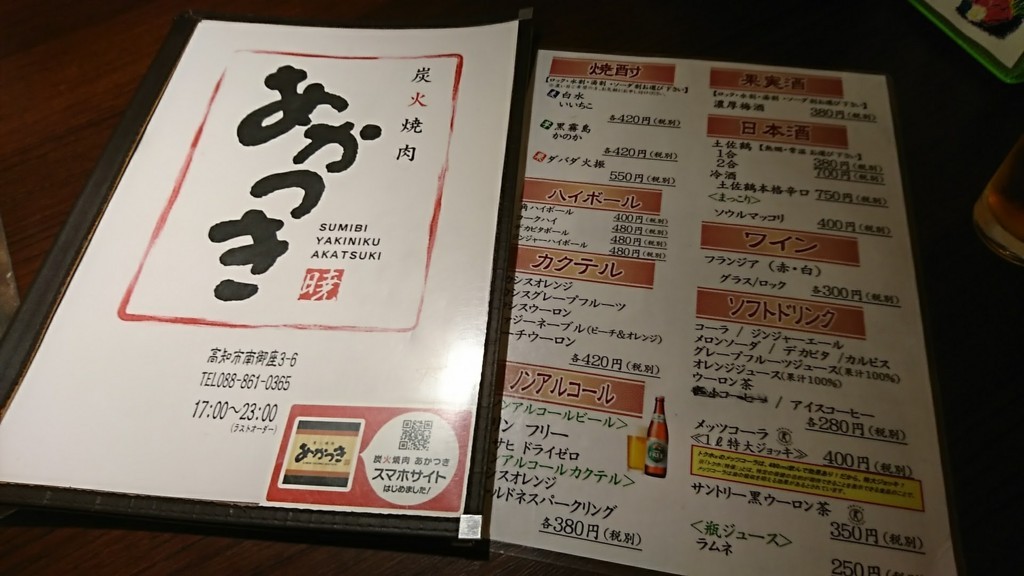 炭火焼肉
あかつき
SUMIBI
YAKINIKU
AKATSUKI
暁
高知市南御座3-6
TEL088-861-0365
17:00～23:00
(ラストオーダー)
あかつき
炭火焼肉 あかつき
スマホサイト
はじめました!
焼酎
【ロック・水割・湯割・ソーダ割お選び下さい】
白水
いいちこ
各420円(税別)
黒霧島
かのか
各420円(税別)
ダバダ火振
550円(税別)
ハイボール
角ハイボール
400円(税別)
ークハイ
480円(税別)
デカビタボール
480円(税別)
ンジャーハイボール
480円(税別)
カクテル
ンスオレンジ
ンスグレープフルーツ
ンスウーロン
ジーネーブル(ピーチ&オレンジ)
ーチウーロン
各420円(税別)
ノンアルコール
ンアルコールビール>
ン フリー
サヒ ドライゼロ
アルコールカクテル>
スオレンジ
ルドネスパークリング
各380円(税別)
果実酒
【ロック・水割・湯割・ソーダ割お選び下さい】
濃厚梅酒
380円(税別)
日本酒
土佐鶴【熱燗・常温 お選び下さい】
1合
380円(税別)
2合
700円(税別)
冷酒
土佐鶴本格辛口 750円(税別)
<まっこり>
ソウルマッコリ
400円(税別)
ワイン
フランジア (赤・白)
グラス/ロック
各300円(税別)
ソフトドリンク
コーラ / ジンジャーエール
メロンソーダ / デカビタ /カルピス
グレープフルーツジュース(果汁100%)
オレンジジュース(果汁100%)
ウーロン茶
/ アイスコーヒー
各280円(税別)
メッツコーラ
≪1ℓ特大ジョッキ≫ 400円(税別)
サントリー黒ウーロン茶
350円(税別)
<瓶ジュース>
ラムネ
250円(税別)